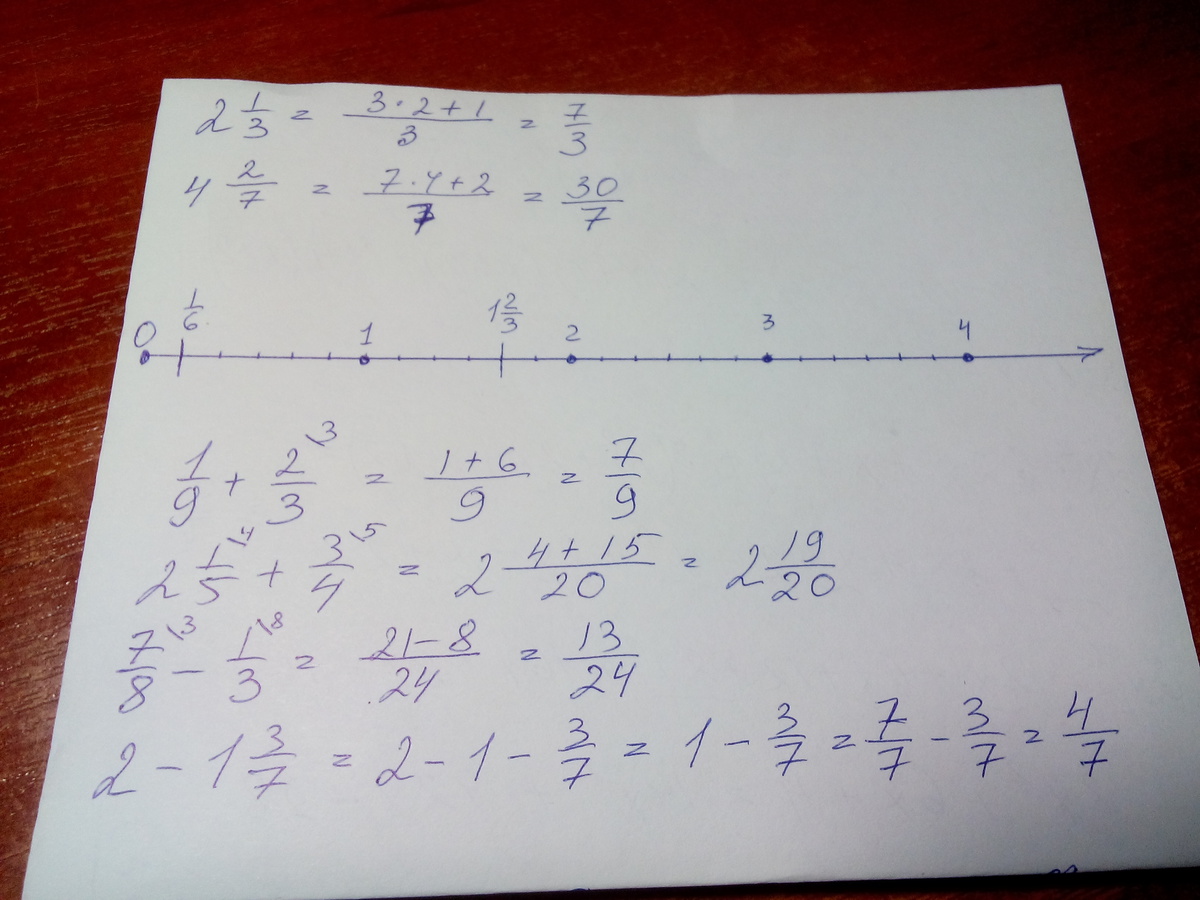 2 1/3 = (3·2+1)/3 = 7/3
4 2/7 = (7·4+2)/7 = 30/7
0 1/6 1 1 2/3 2 3 4
1/9 + 2/3 \3 = (1+6)/9 = 7/9
2 1/5 \4 + 3/4 \5 = 2 (4+15)/20 = 2 19/20
7/8 \3 − 1/3 \8 = (21−8)/24 = 13/24
2 − 1 3/7 = 2 − 1 − 3/7 = 1 − 3/7 = 7/7 − 3/7 = 4/7